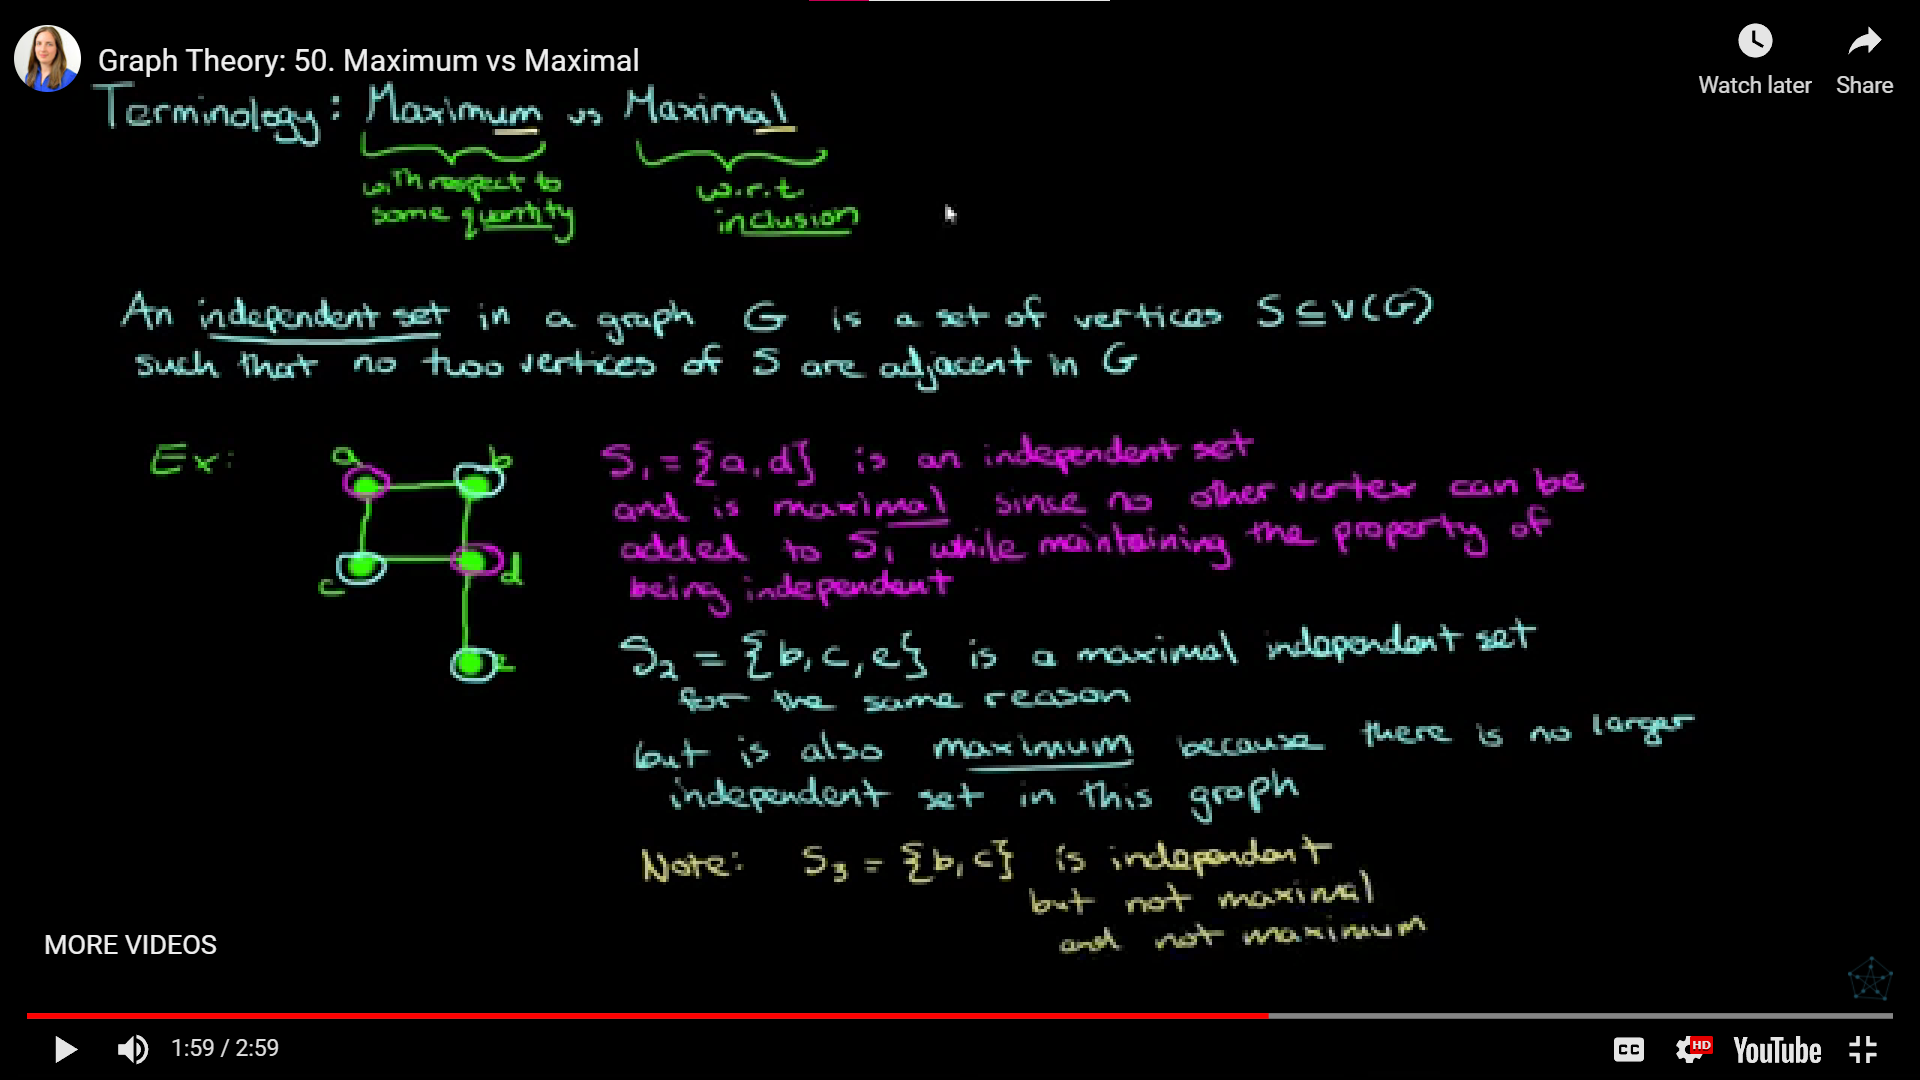 Graph Theory: 50. Maximum vs Maximal
Watch later
Share
Terminology: Maximum vs Maximal
with respect to
some quantity
w.r.t
inclusion
An independent set in a graph G is a set of vertices S ⊆ V(G)
such that no two vertices of S are adjacent in G
Ex:
a
b
c
d
e
S₁ = {a, d} is an independent set
and is maximal since no other vertex can be
added to S₁ while maintaining the property of
being independent
S₂ = {b, c, e} is a maximal independent set
for the same reason
but is also maximum because there is no larger
independent set in this graph
Note: S₃ = {b, c} is independent
but not maximal
and not maximum
MORE VIDEOS
1:59 / 2:59
CC
HD
YouTube